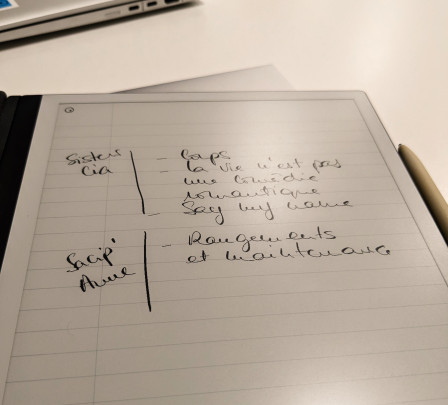 Sisters
Cia
- Caps
- La vie n'est pas
une comédie
romantique
- Say my name
Sacip'
Anne
- Rangements
et maintenance